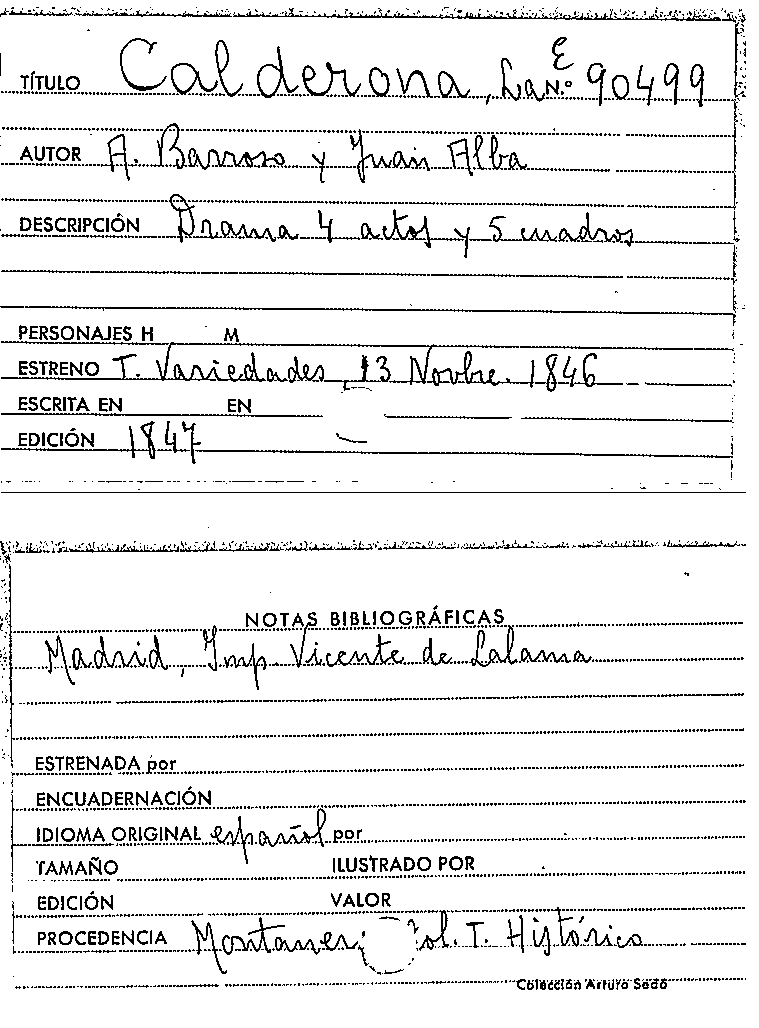 E
TÍTULO Calderona, La N.º 90499
AUTOR A. Barroso y Juan Alba
DESCRIPCIÓN Drama 4 actos y 5 cuadros
PERSONAJES H M
ESTRENO T. Variedades, 13 Novbre. 1846
ESCRITA EN EN
EDICIÓN 1847
NOTAS BIBLIOGRÁFICAS
Madrid, Imp. Vicente de Lalama
ESTRENADA por
ENCUADERNACIÓN
IDIOMA ORIGINAL español por
TAMAÑO ILUSTRADO POR
EDICIÓN VALOR
PROCEDENCIA Montaner; Col. T. Histórico
Colección Arturo Sedó